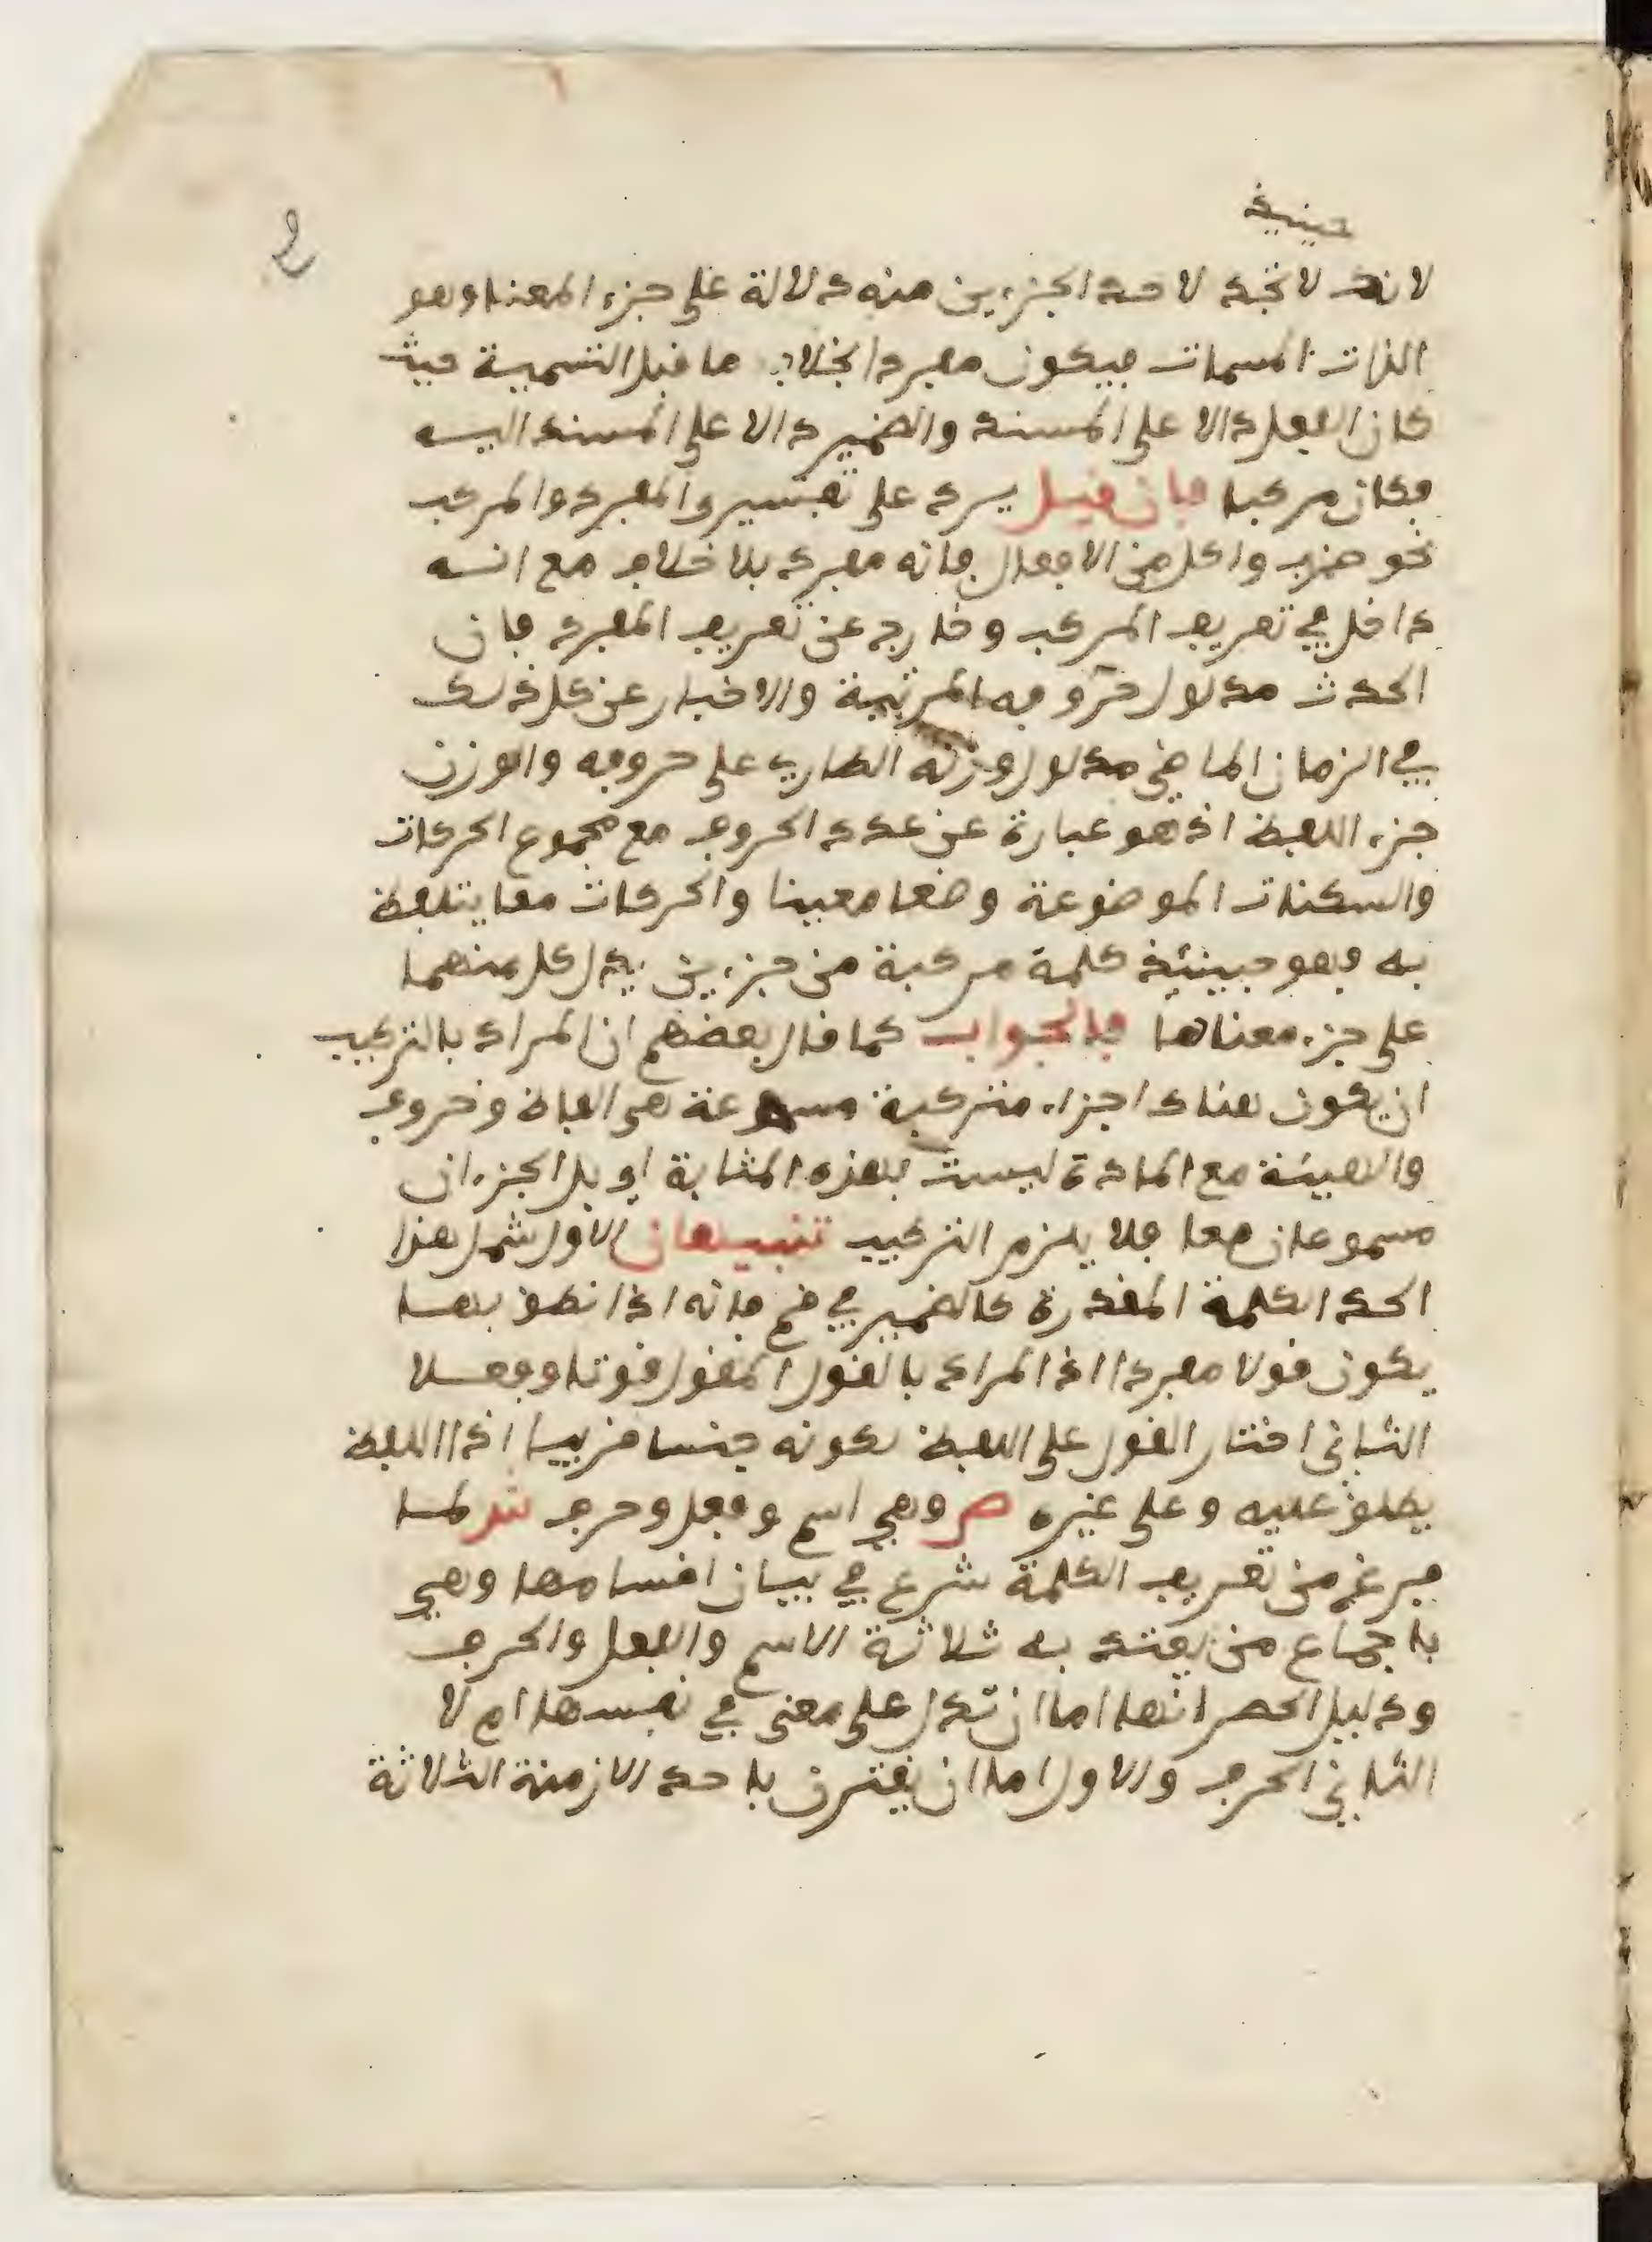 2
حينئذ
لانك لا تجد لاحد الجزءين منه دلالة على جزء المعنا وهو
الذات المسمات فيكون مفردا بخلاف ما قبل التسمية حيث
كان الفعل دالا على المسند والضمير دالا على المسند اليه
فكان مركبا فان قيل يرد على تفسير والمفرد والمركب
نحو ضرب واكل من الافعال فانه مفرد بلا خلاف مع انه
داخل في تعريف المركب وخارج عن تعريف المفرد فان
الحدث مدلول حروفه المرتبة والاخبار عن كل ذلك
في الزمان الماضي مدلول وزنه الطاري على حروفه والوزن
جزء اللفظ اذ هو عبارة عن عدد الحروف مع مجموع الحركات
والسكنات الموضوعة وضعا معينا والحركات مما يتلفظ
به وهو حينئذ كلمة مركبة من جزءين يدل كل منهما
على جزء معناها فالجواب كما قال بعضهم ان المراد بالتركيب
ان يكون هناك اجزاء مترتبة مسموعة هي الفاظ وحروف
والهيئة مع المادة ليست بهذه المثابة اي بل الجزءان
مسموعان معا فلا يلزم التركيب تنبيهان الاول شمل هذا
الحد الكلمة المقدرة كالضمير في قم فانه اذا نطق بها
يكون قولا مفردا اذ المراد بالقول المقول قوتا وفعلا
الثاني اختار القول على اللفظ لكونه جنسا قريبا اذ اللفظ
يطلق عليه وعلى غيره ص وهي اسم وفعل وحرف ش لما
فرغ من تعريف الكلمة شرع في بيان اقسامها وهي
باجماع من يعتد به ثلاثة الاسم والفعل والحرف
ودليل الحصر انها اما ان تدل على معنى في نفسها ام لا
الثاني الحرف والاول اما ان يقترن باحد الازمنة الثلاثة